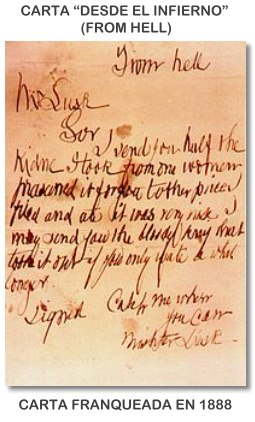 CARTA “DESDE EL INFIERNO”
(FROM HELL)
From hell
Mr Lusk
Sor
I send you half the
Kidne I took from one women
prasarved it for you tother piece I
fried and ate it was very nise I
may send you the bloody knif that
took it out if you only wate a whil
longer
Signed Catch me when
you Can
Mishter Lusk
CARTA FRANQUEADA EN 1888